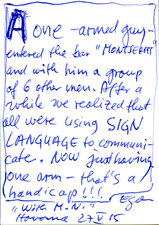 A one-armed guy
entered the bar "MONTSERAT"
and with him a group
of 6 other men. After a
while we realized that
all were using SIGN
LANGUAGE to communi-
cate. Now just having
one arm - that's a
handicap!!!
"With M.N."
Havana 27 V 15